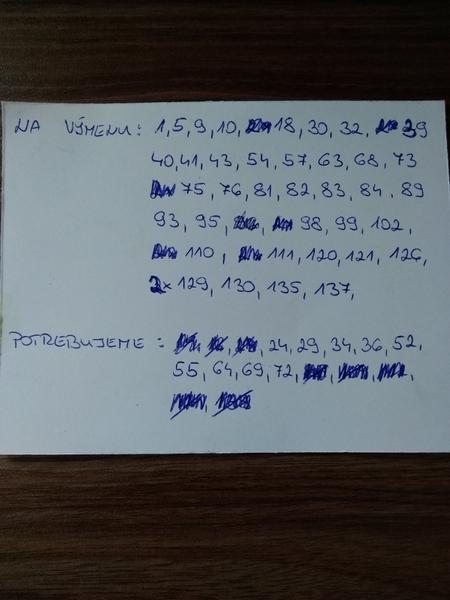 NA VÝMENU: 1, 5, 9, 10, 18, 30, 32, 39
40, 41, 43, 54, 57, 63, 68, 73
75, 76, 81, 82, 83, 84, 89
93, 95, 98, 99, 102,
110, 111, 120, 121, 126,
2x 129, 130, 135, 137,
POTREBUJEME: 24, 29, 34, 36, 52,
55, 64, 69, 72